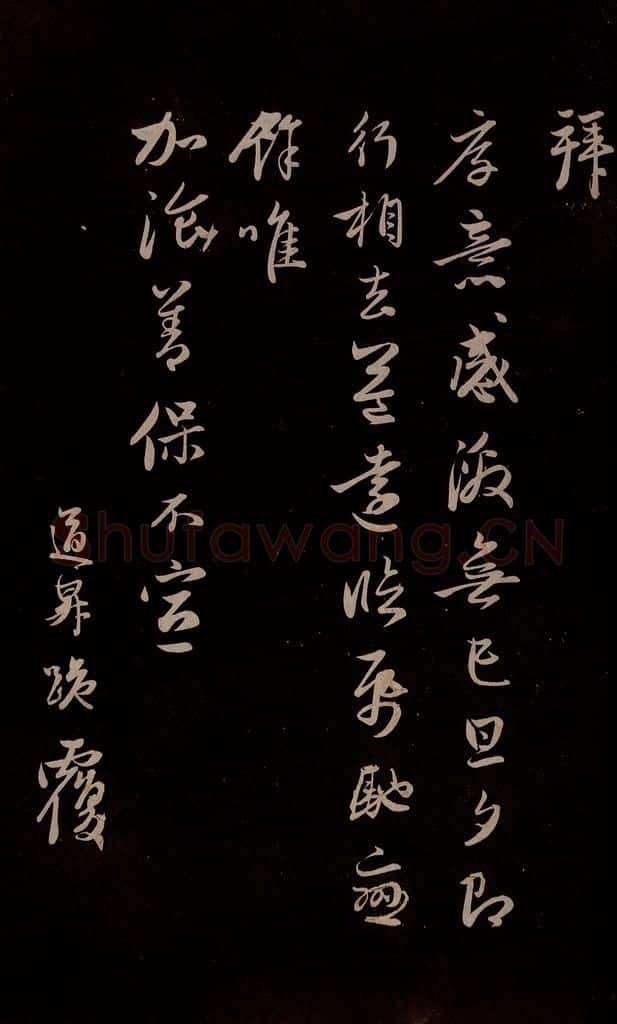 拜
厚意感激無已旦夕即
行相去益遠臨風馳戀
餘唯
加飱善保不宣
道昇跪覆
Shufawang.CN